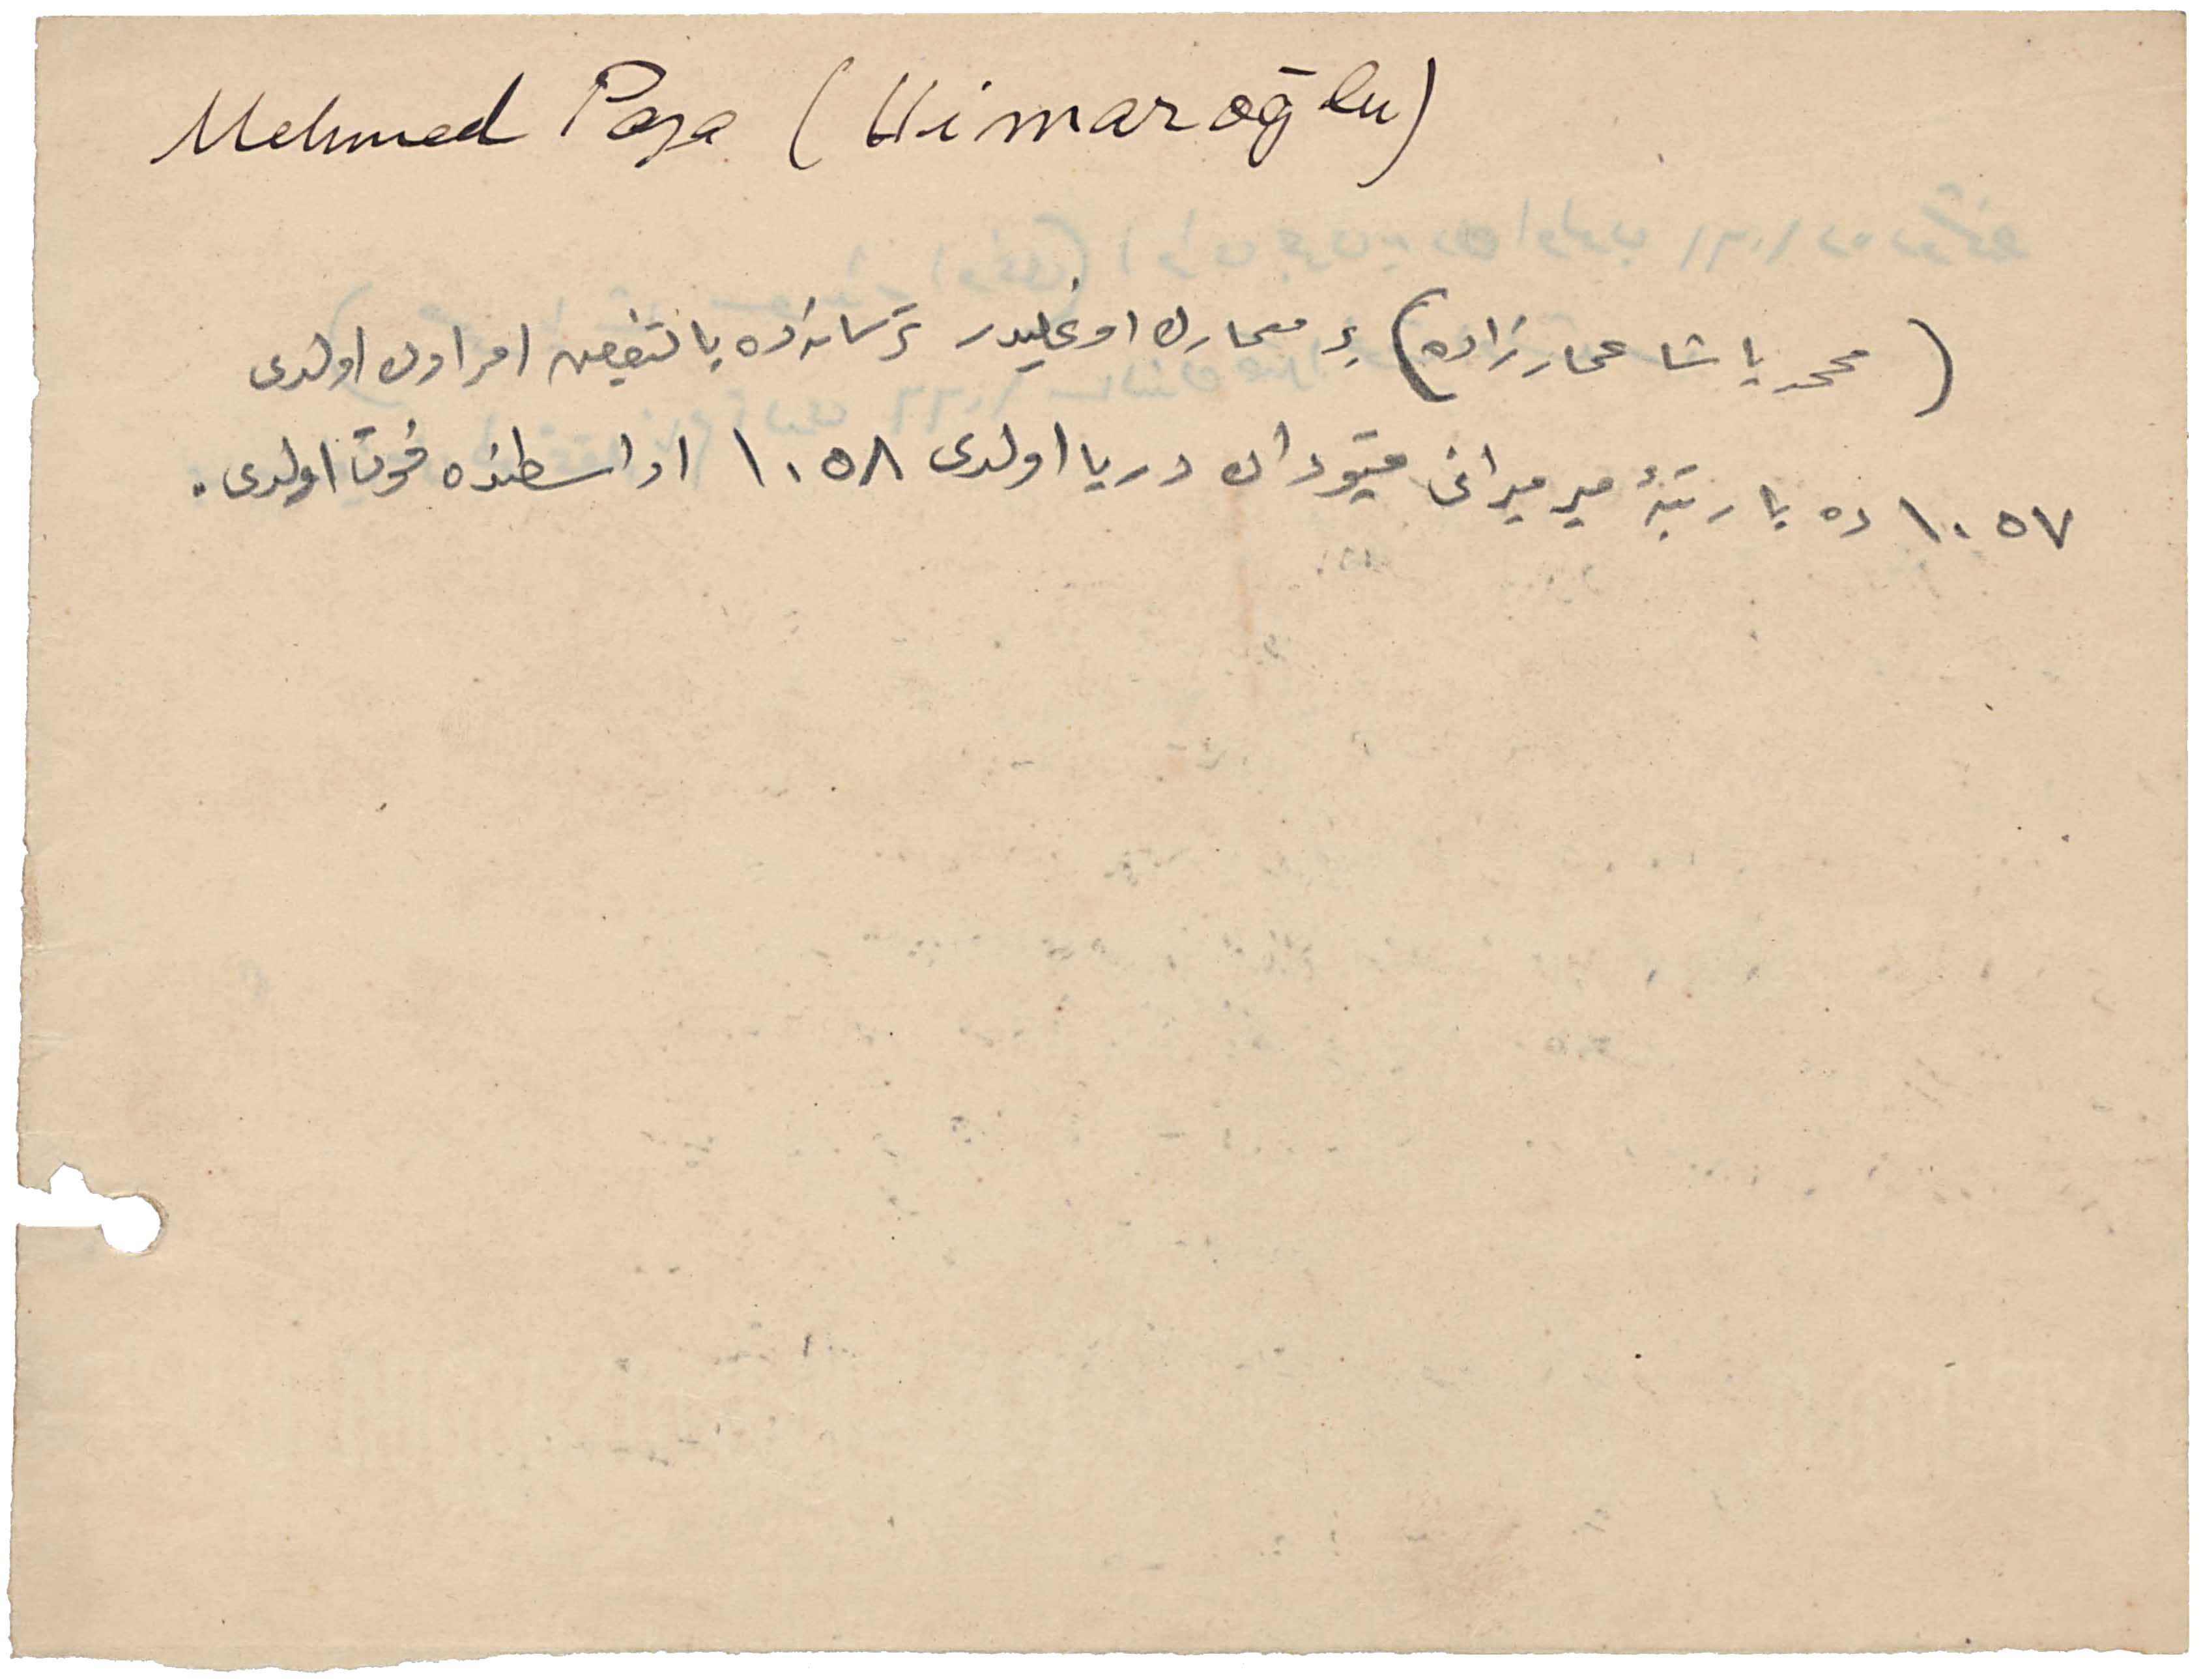 Mehmed Paşa (Himaroğlu)
(محمد پاشا عمارزاده) بر معمارك اوغليدر ترسانه‌ده بالتفيض امرادن اولدى
١٠٥٧ ده با رتبهٔ ميرميرانى قپودان دريا اولدى ١٠٥٨ اواسطنده فوت اولدى.